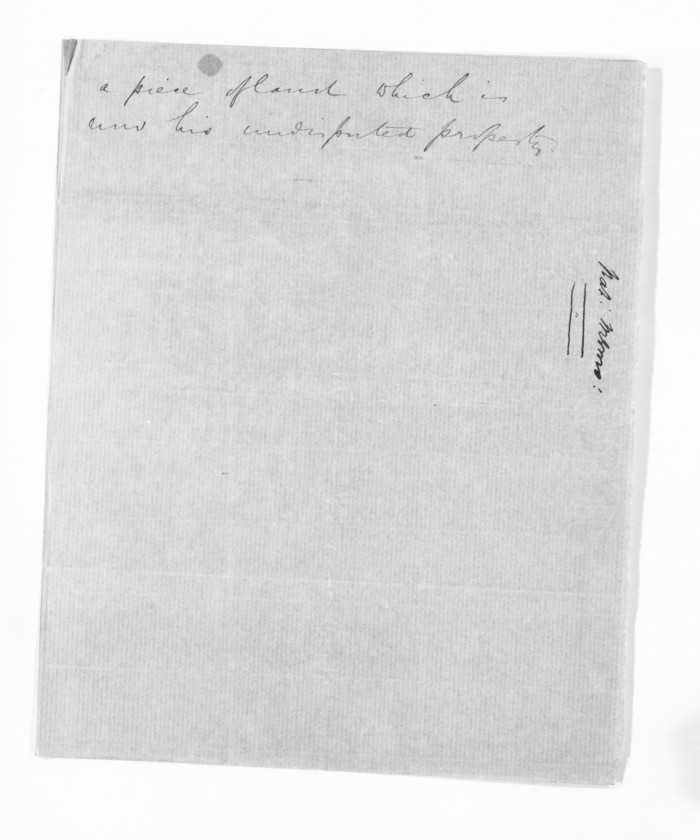 a piece of land which is
now his undisputed property.